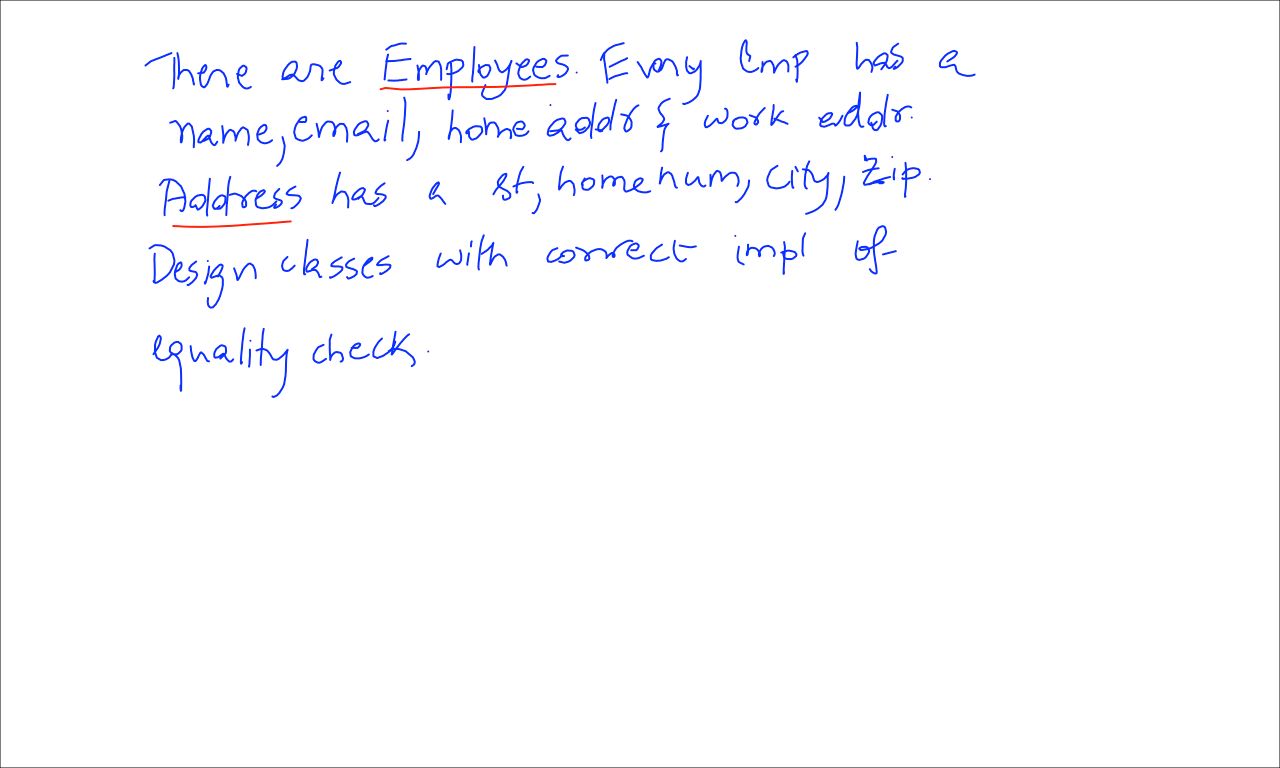 There are Employees. Every Emp has a
name, email, home addr & work addr.
Address has a st, homenum, city, zip.
Design classes with correct impl of
equality check.